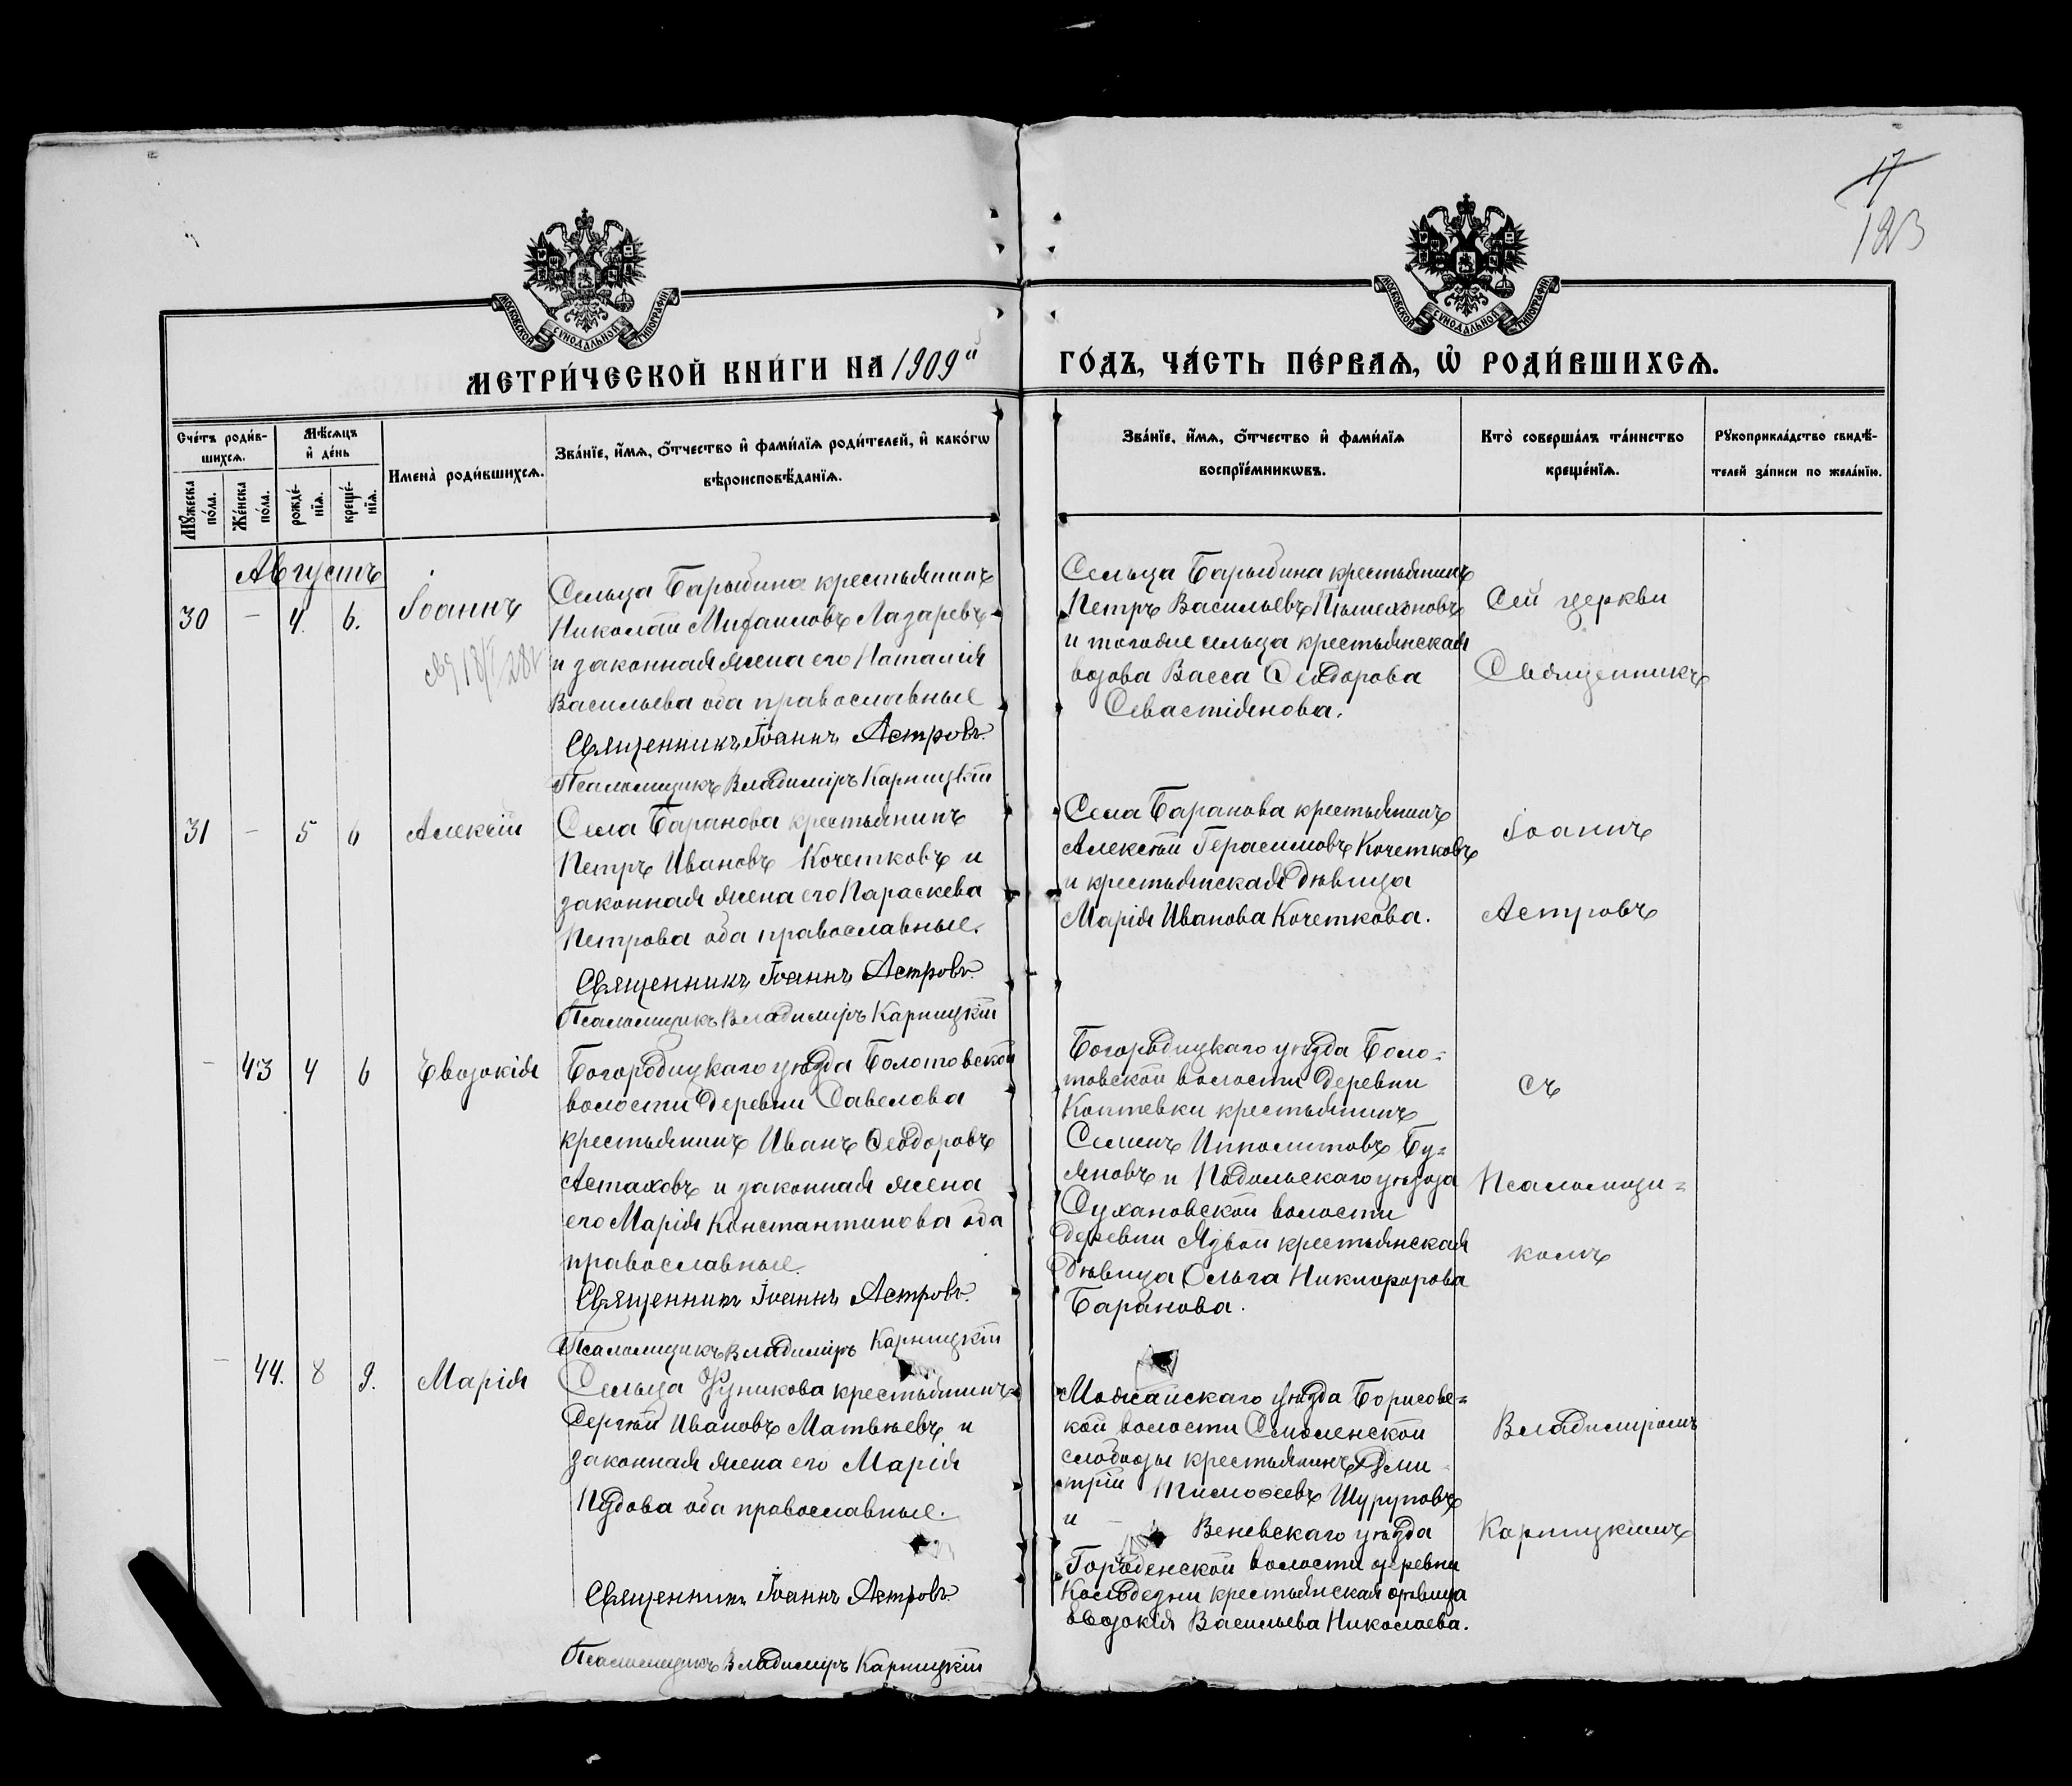 17
123
МОСКОВСКОЙ СѴНОДАЛЬНОЙ ТИПОГРАФІИ
МОСКОВСКОЙ СѴНОДАЛЬНОЙ ТИПОГРАФІИ
МЕТРИ́ЧЕСКОЙ КНИ́ГИ НА 1909й
ГО́ДЪ, ЧА́СТЬ ПЕ́РВАѦ, Ѿ РОДИ́ВШИХСѦ.
Сче́тъ роди́в-
шихсѧ.
Мꙋ́жеска по́ла.
Же́нска по́ла.
Мѣ́сѧцъ и҆ де́нь
рожде́-нїѧ.
креще́-нїѧ.
И҆мена̀ роди́вшихсѧ.
Зва́нїе, и҆́мѧ, ѻ҆́тчество и҆ фами́лїѧ роди́телей, и҆ како́гѡ
вѣроисповѣ́данїѧ.
Зва́нїе, и҆́мѧ, ѻ҆́тчество и҆ фами́лїѧ
воспрїе́мникѡвъ.
Кто̀ соверша́лъ та́инство
креще́нїѧ.
Рꙋкоприкла́дство свидѣ́-
телей за́писи по жела́нїю.
Августъ
30 - 4. 6. Іоаннъ
Сельца Барыбина крестьянинъ
Николай Михаиловъ Лазаревъ
и законная жена его Наталія
Васильева оба православные
Священникъ Іоаннъ Астровъ.
Псаломщикъ Владиміръ Карницкій
Сельца Барыбина крестьянинъ
Петръ Васильевъ
и тогоже сельца крестьянская
вдова Васса Ѳеодорова
Севастіянова.
Сей церкви
Священникъ
31 - 5 6 Алексѣй
Села Баранова крестьянинъ
Петръ Ивановъ Кочетковъ и
законная жена его Параскева
Петрова оба православные.
Священникъ Іоаннъ Астровъ.
Псаломщикъ Владиміръ Карницкій
Села Баранова крестьянинъ
Алексѣй Герасимовъ Кочетковъ
и крестьянская дѣвица
Марія Иванова Кочеткова.
Іоаннъ
Астровъ
- 43 4 6 Евдокія
Богородицкаго уѣзда Болотовской
волости деревни Савелова
крестьянинъ Иванъ Ѳеодоровъ
Астаховъ и законная жена
его Марія Константинова оба
православные.
Священникъ Іоаннъ Астровъ.
Псаломщикъ Владиміръ Карницкій
Богородицкаго уѣзда Боло=
товской волости деревни
Коптевки крестьянинъ
Семенъ Ипполитовъ Бу=
яновъ и Подольскаго уѣзда
Сухановской волости
деревни Язвой крестьянская
дѣвица Ольга Никифорова
Баранова.
съ
Псаломщи=
комъ
- 44. 8 9. Марія
Сельца Уѵникова крестьянинъ
Сергѣй Ивановъ Матвѣевъ и
законная жена его Марія
Пудова оба православные.
Священникъ Іоаннъ Астровъ.
Псаломщикъ Владиміръ Карницкій
Можайскаго уѣзда Борисовс=
кой волости Смоленской
слободы крестьянинъ Дми
трій Тимоѳеевъ Шуруповъ
и Веневскаго уѣзда
Городенской волости деревни
Колодезни крестьянская дѣвица
Евдокія Васильева Николаева.
Владиміромъ
Карницкимъ